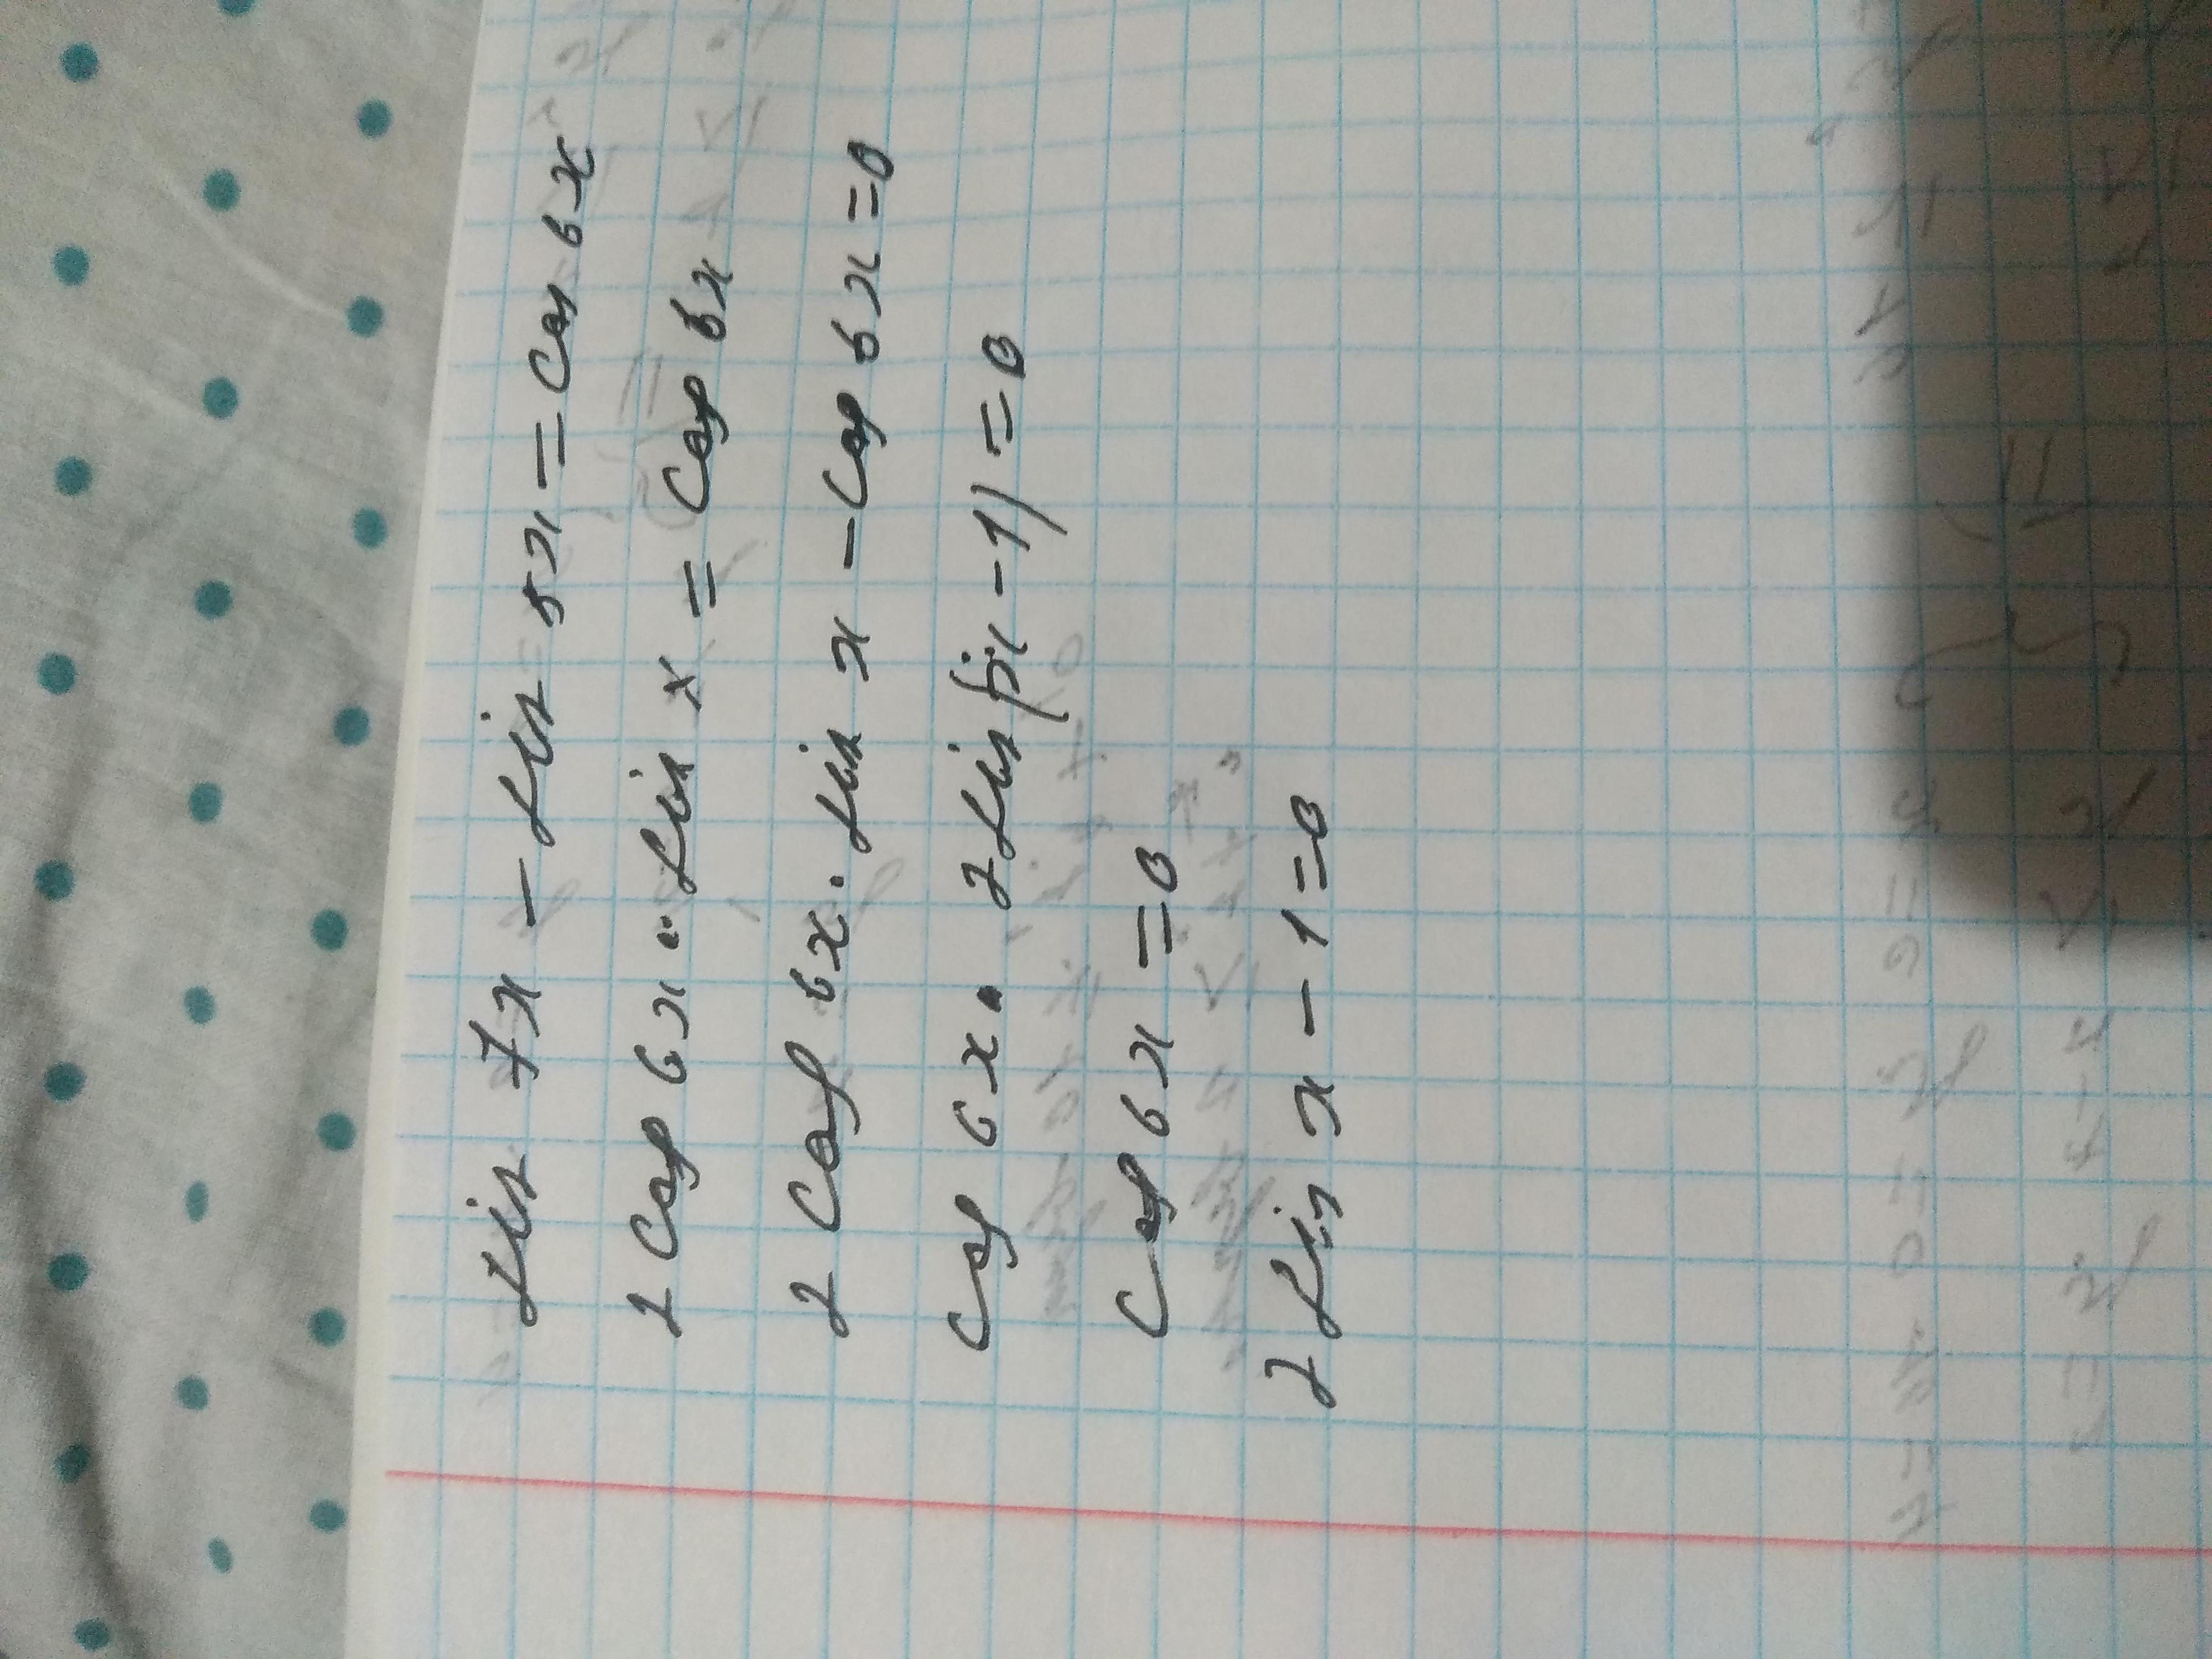 sin 7x - sin 5x = cos 6x
2 cos 6x · sin x = cos 6x
2 cos 6x · sin x - cos 6x = 0
cos 6x · 2 sin (x - 1) = 0
cos 6x = 0
2 sin x - 1 = 0